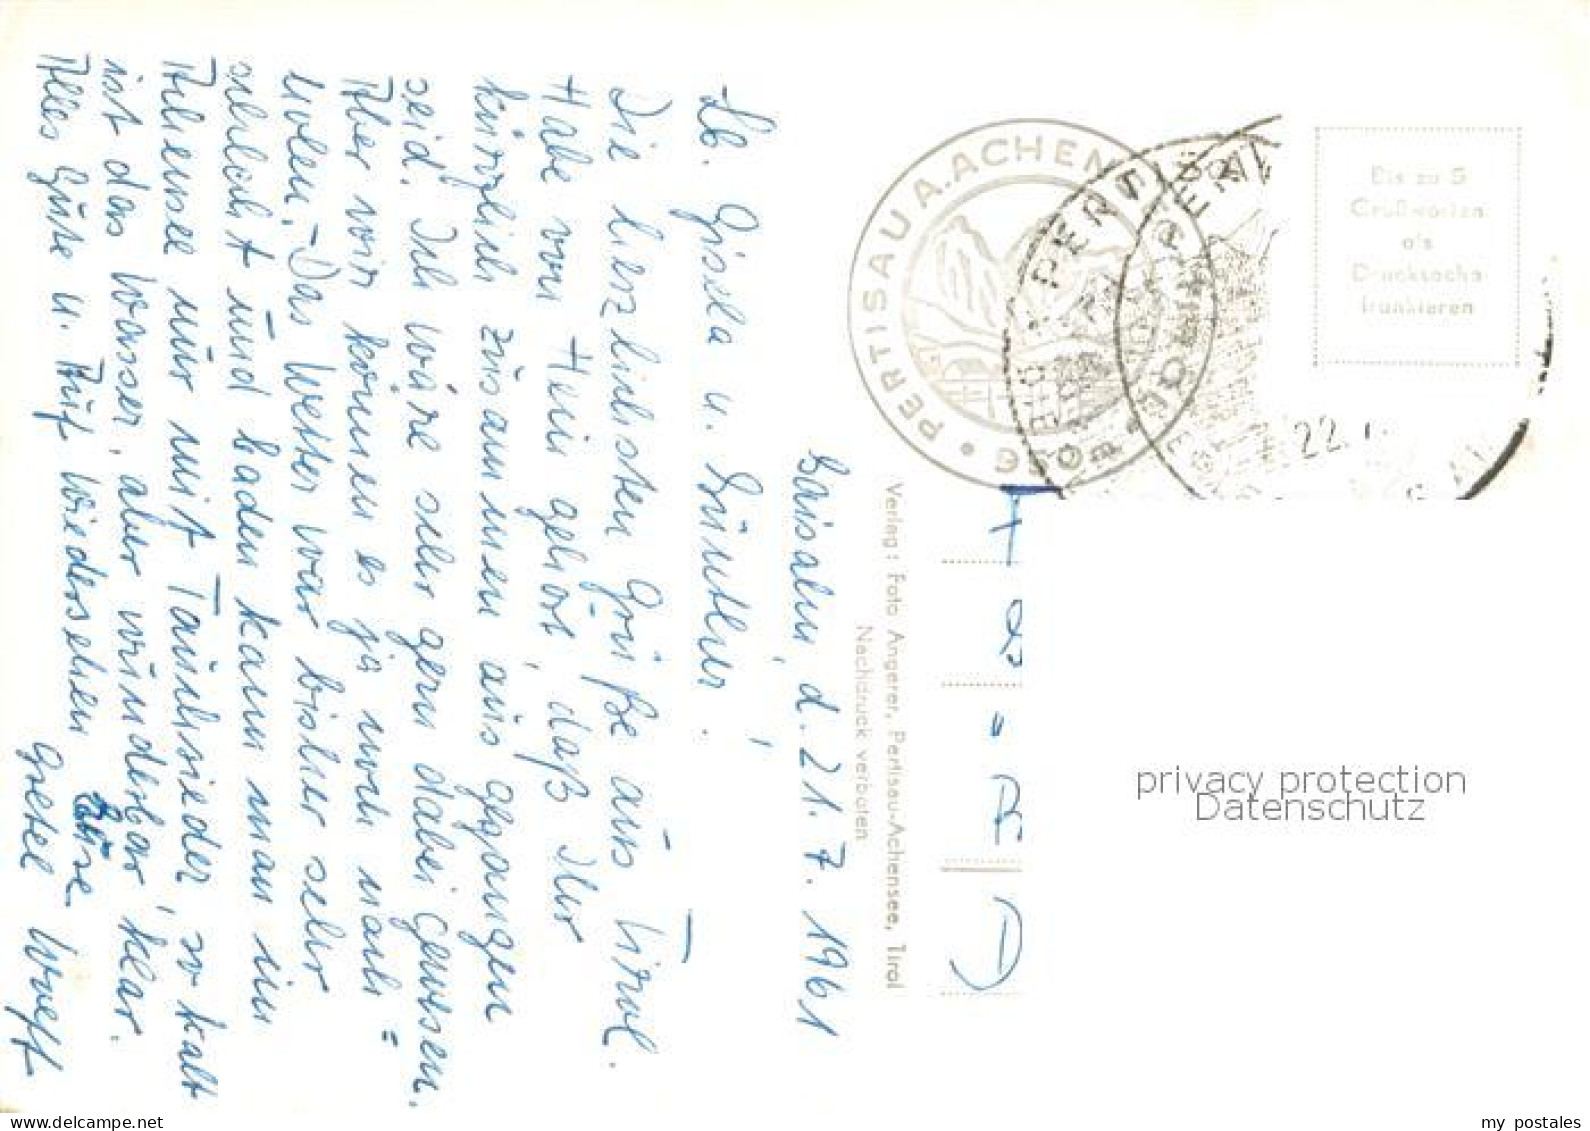 Gaisalm, d. 21. 7. 1961
Lb. Gisela u. Günther!
Die herzlichsten Grüße aus Tirol.
Habe von Hein gehört, daß Ihr
kürzlich zusammen ausgegangen
seid. Ich wäre sehr gern dabei gewesen.
Aber wir können es ja noch nach=
holen. Das Wetter war bisher sehr
schlecht und baden kann man im
Achensee nur mit Tauchsieder, so kalt
ist das Wasser, aber wunderbar klar.
Alles Gute u. Auf Wiedersehen
Grete Wolff
Verlag: Foto Angerer, Pertisau-Achensee, Tirol
Nachdruck verboten
PERTISAU A. ACHENSEE
Bis zu 5
Grußworten
als
Drucksache
frankieren
22.
privacy protection
Datenschutz
my postales